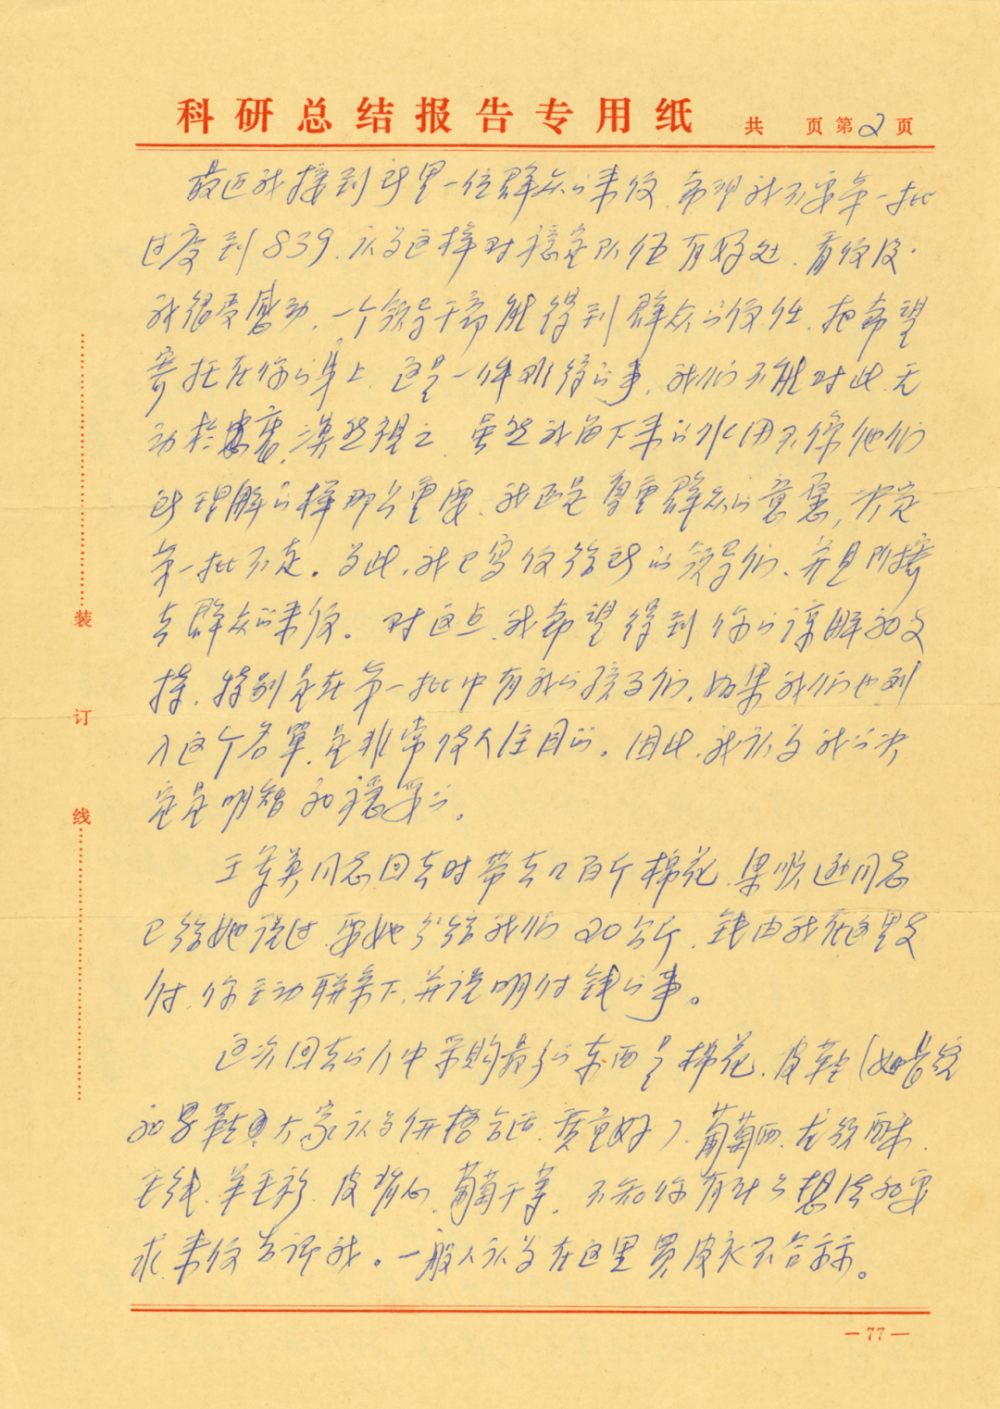 科研总结报告专用纸 共 页 第2页
最近我接到所里一位群众的来信，希望我不要第一批
过度到839，认为这样对稳定队伍有好处，看信后，
我很受感动，一个领导干部能得到群众的信任，把希望
寄托在你的身上，这是一件难得的事，我们不能对此无
动于衷，漠然视之，虽然我留下来的作用不像他们
所理解的样那么重要，我还是尊重群众的意愿，决定
第一批不走。为此，我已写信给所的领导们，并且附接
去群众的来信。对这点，我希望得到你的谅解和支
持，特别是在第一批中有我的孩子们，如果我们也列
入这个名单，是非常使人注目的。因此，我认为我的决
定是明智和稳妥的。
王 英同志回去时带去几百斤棉花，果 同志
已给她说过，要她分给我们20公斤，钱由我在这里支
付，你主动联系下，并说明付钱的事。
这次回去的人中采购最多的东西是棉花、皮鞋（
和 鞋，大家认为价格合适，质量好）、葡萄
毛线、羊毛衫、皮背心、葡萄干等，不知你有什么想法和要
求，来信告诉我。一般人认为在这里买皮衣不合算。
装
订
线
—77—